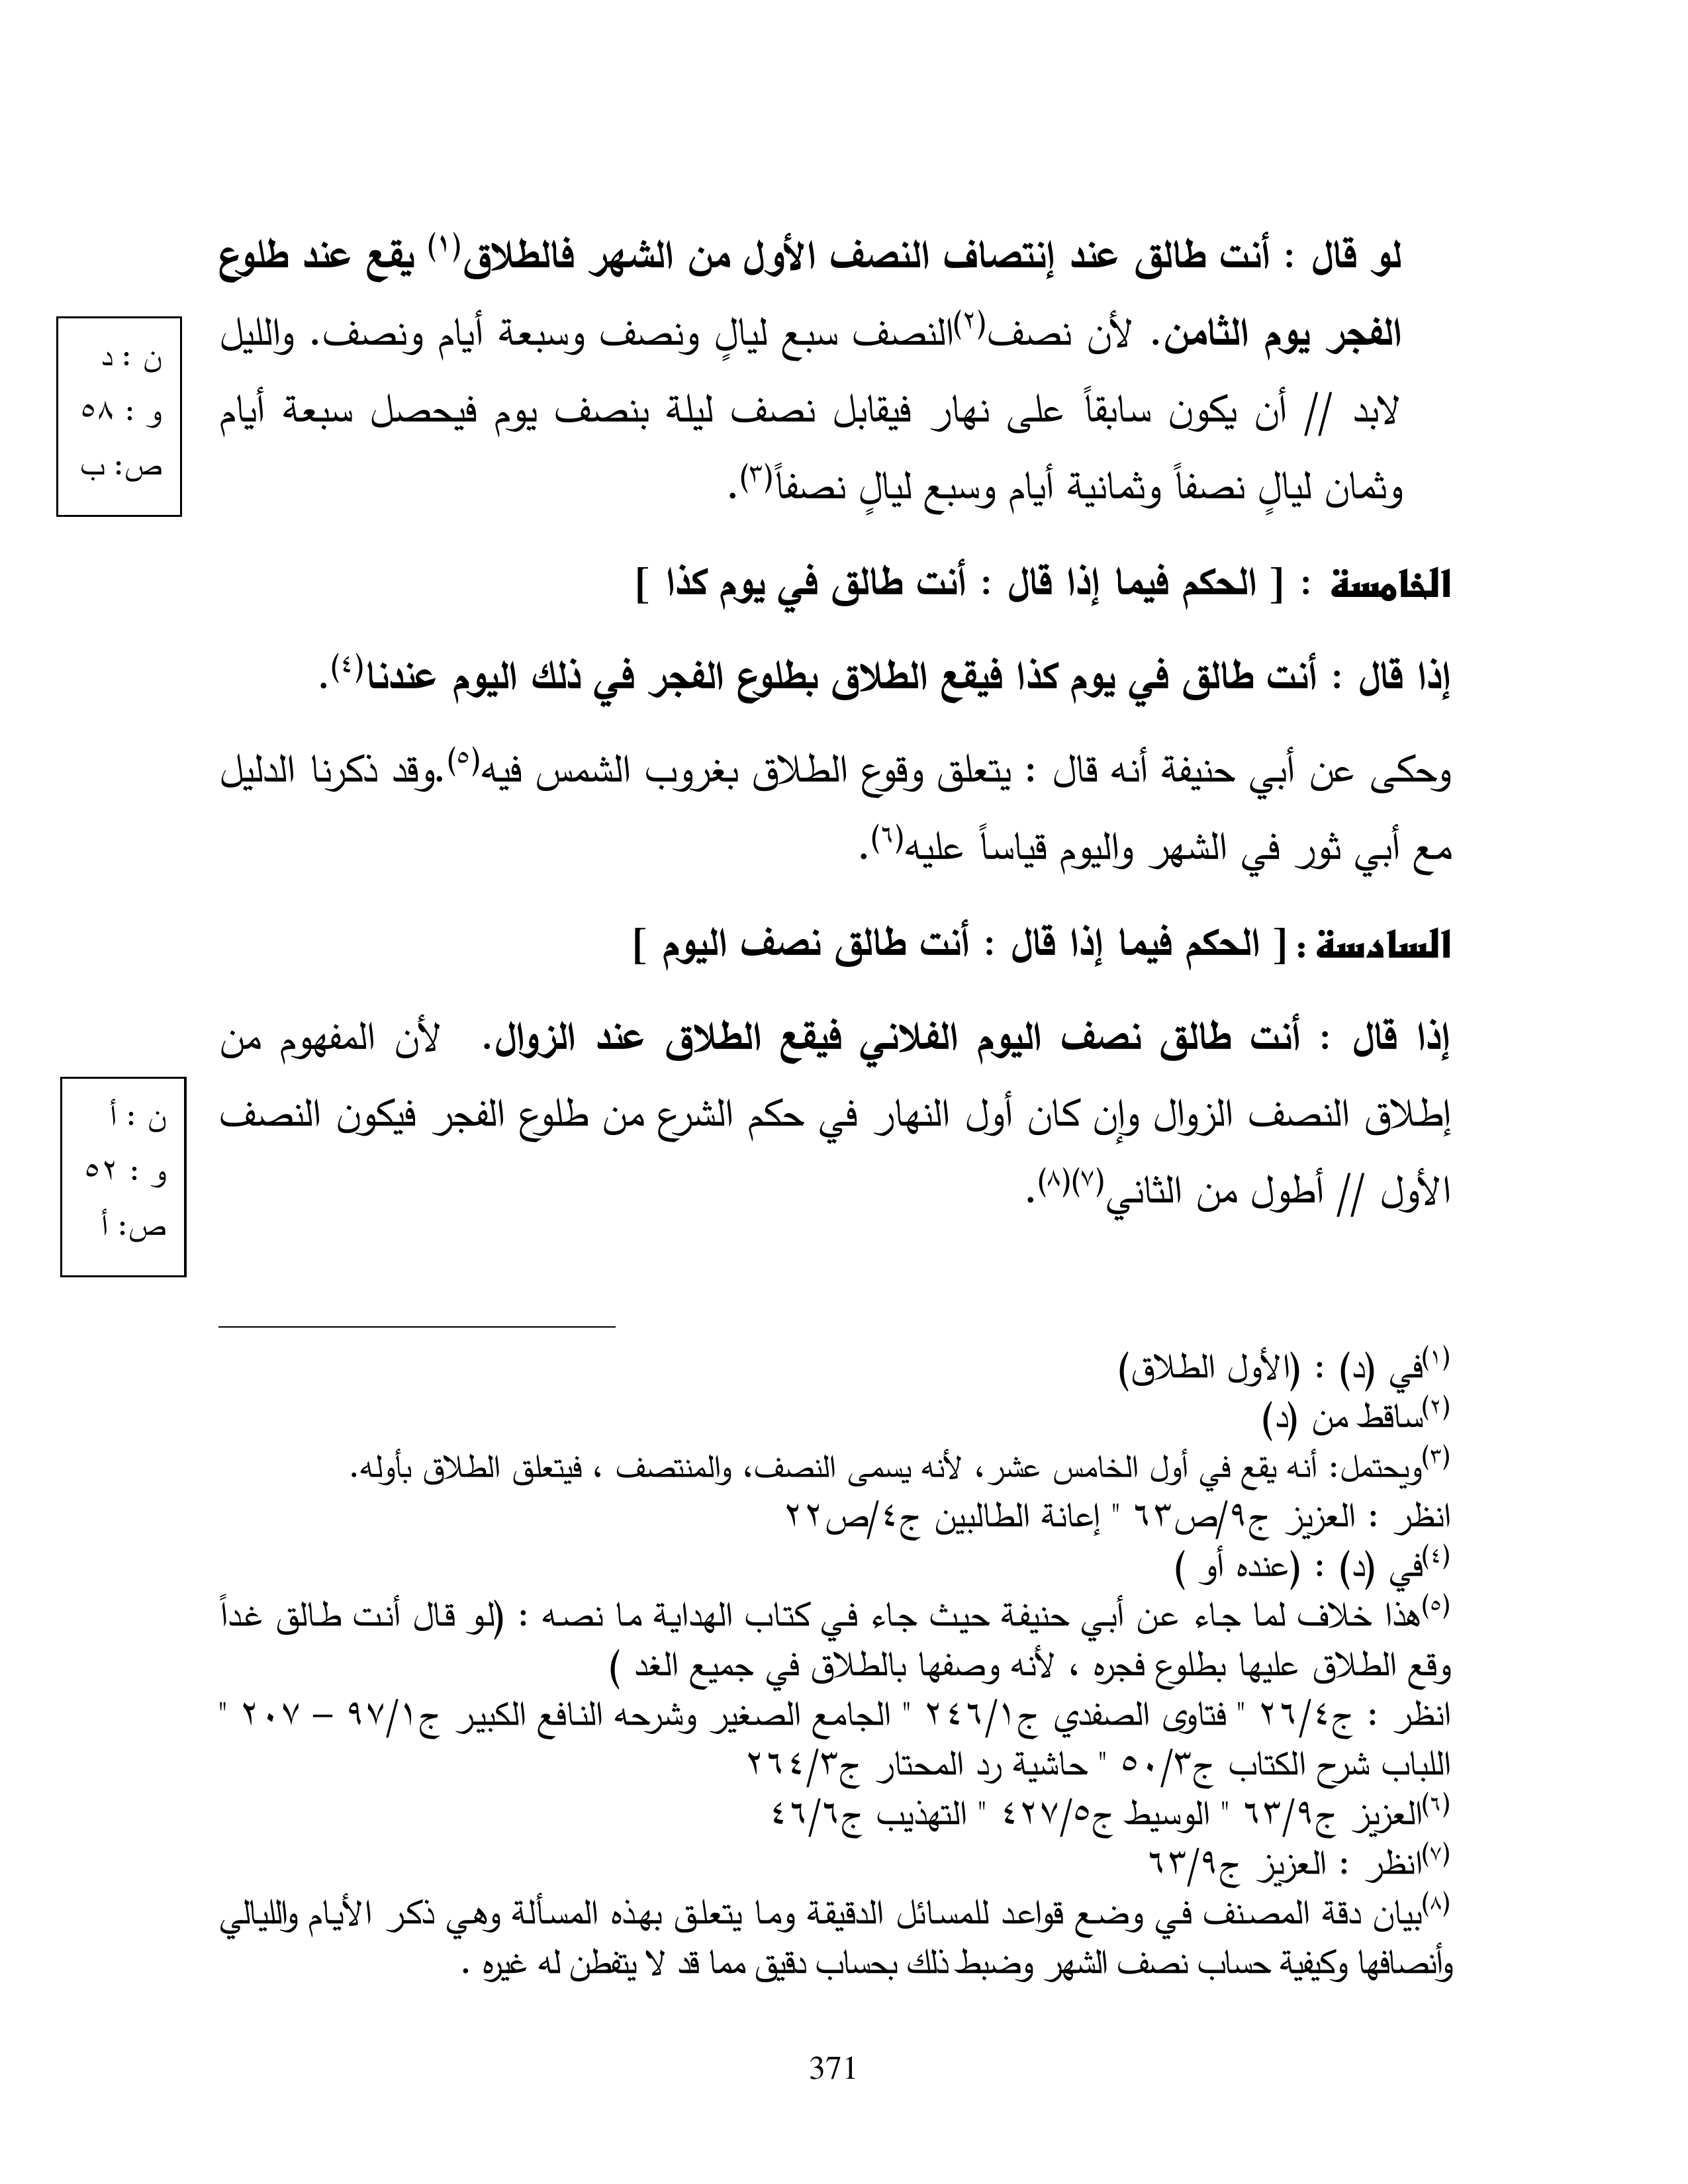 لو قال : أنت طالق عند إنتصاف النصف الأول من الشهر فالطلاق(١) يقع عند طلوع
الفجر يوم الثامن. لأن نصف(٢)النصف سبع ليالٍ ونصف وسبعة أيام ونصف. والليل
لابد // أن يكون سابقاً على نهار فيقابل نصف ليلة بنصف يوم فيحصل سبعة أيام
وثمان ليالٍ نصفاً وثمانية أيام وسبع ليالٍ نصفاً(٣).
ن : د
و : ٥٨
ص: ب
الخامسة : [ الحكم فيما إذا قال : أنت طالق في يوم كذا ]
إذا قال : أنت طالق في يوم كذا فيقع الطلاق بطلوع الفجر في ذلك اليوم عندنا(٤).
وحكى عن أبي حنيفة أنه قال : يتعلق وقوع الطلاق بغروب الشمس فيه(٥).وقد ذكرنا الدليل
مع أبي ثور في الشهر واليوم قياساً عليه(٦).
السادسة : [ الحكم فيما إذا قال : أنت طالق نصف اليوم ]
إذا قال : أنت طالق نصف اليوم الفلاني فيقع الطلاق عند الزوال. لأن المفهوم من
إطلاق النصف الزوال وإن كان أول النهار في حكم الشرع من طلوع الفجر فيكون النصف
الأول // أطول من الثاني(٧)(٨).
ن : أ
و : ٥٢
ص: أ
(١)في (د) : (الأول الطلاق)
(٢)ساقط من (د)
(٣)ويحتمل: أنه يقع في أول الخامس عشر، لأنه يسمى النصف، والمنتصف ، فيتعلق الطلاق بأوله.
انظر : العزيز ج٩/ص٦٣ " إعانة الطالبين ج٤/ص٢٢
(٤)في (د) : (عنده أو )
(٥)هذا خلاف لما جاء عن أبي حنيفة حيث جاء في كتاب الهداية ما نصه : (لو قال أنت طالق غداً
وقع الطلاق عليها بطلوع فجره ، لأنه وصفها بالطلاق في جميع الغد )
انظر : ج٤/٢٦ " فتاوى الصفدي ج١/٢٤٦ " الجامع الصغير وشرحه النافع الكبير ج١/٩٧ – ٢٠٧ "
اللباب شرح الكتاب ج٣/٥٠ " حاشية رد المحتار ج٣/٢٦٤
(٦)العزيز ج٩/٦٣ " الوسيط ج٥/٤٢٧ " التهذيب ج٦/٤٦
(٧)انظر : العزيز ج٩/٦٣
(٨)بيان دقة المصنف في وضع قواعد للمسائل الدقيقة وما يتعلق بهذه المسألة وهي ذكر الأيام والليالي
وأنصافها وكيفية حساب نصف الشهر وضبط ذلك بحساب دقيق مما قد لا يتفطن له غيره .
371